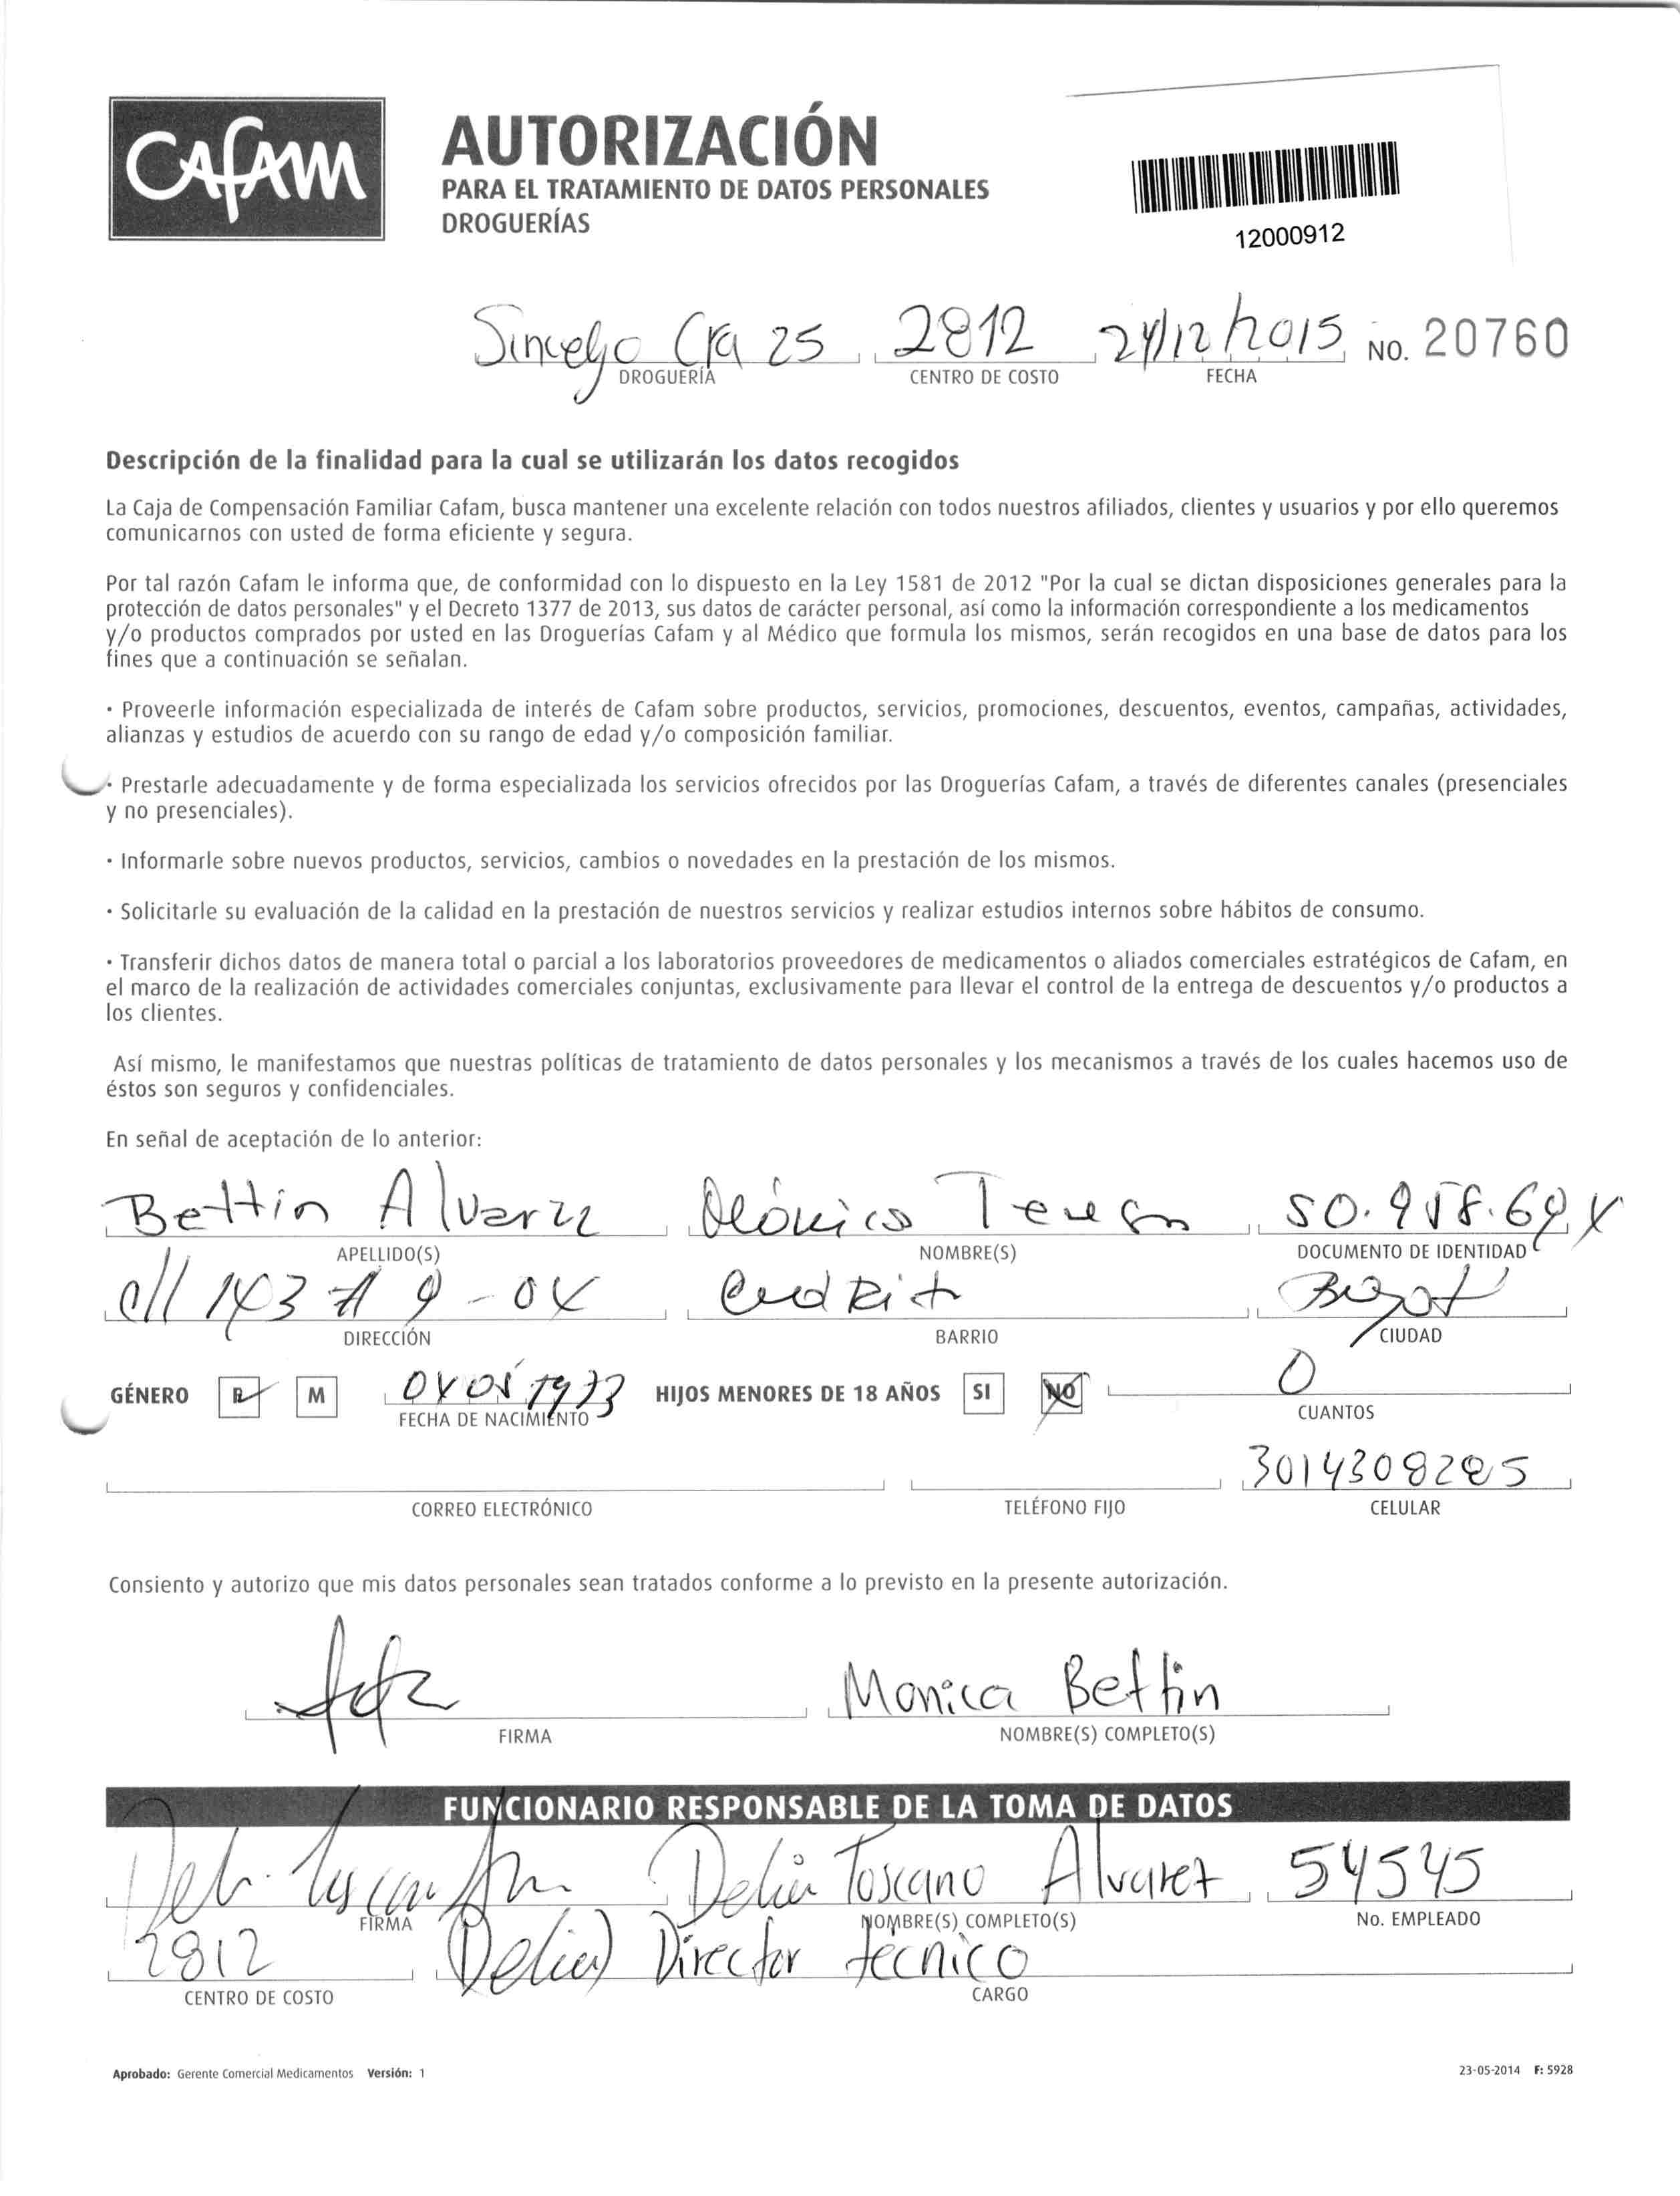 CAFAM
AUTORIZACIÓN
PARA EL TRATAMIENTO DE DATOS PERSONALES
DROGUERÍAS
12000912
Sincelejo Cra 25 2812 24/12/2015 NO. 20760
DROGUERÍA CENTRO DE COSTO FECHA
Descripción de la finalidad para la cual se utilizarán los datos recogidos
La Caja de Compensación Familiar Cafam, busca mantener una excelente relación con todos nuestros afiliados, clientes y usuarios y por ello queremos
comunicarnos con usted de forma eficiente y segura.
Por tal razón Cafam le informa que, de conformidad con lo dispuesto en la Ley 1581 de 2012 "Por la cual se dictan disposiciones generales para la
protección de datos personales" y el Decreto 1377 de 2013, sus datos de carácter personal, así como la información correspondiente a los medicamentos
y/o productos comprados por usted en las Droguerías Cafam y al Médico que formula los mismos, serán recogidos en una base de datos para los
fines que a continuación se señalan.
· Proveerle información especializada de interés de Cafam sobre productos, servicios, promociones, descuentos, eventos, campañas, actividades,
alianzas y estudios de acuerdo con su rango de edad y/o composición familiar.
· Prestarle adecuadamente y de forma especializada los servicios ofrecidos por las Droguerías Cafam, a través de diferentes canales (presenciales
y no presenciales).
· Informarle sobre nuevos productos, servicios, cambios o novedades en la prestación de los mismos.
· Solicitarle su evaluación de la calidad en la prestación de nuestros servicios y realizar estudios internos sobre hábitos de consumo.
· Transferir dichos datos de manera total o parcial a los laboratorios proveedores de medicamentos o aliados comerciales estratégicos de Cafam, en
el marco de la realización de actividades comerciales conjuntas, exclusivamente para llevar el control de la entrega de descuentos y/o productos a
los clientes.
Así mismo, le manifestamos que nuestras políticas de tratamiento de datos personales y los mecanismos a través de los cuales hacemos uso de
éstos son seguros y confidenciales.
En señal de aceptación de lo anterior:
Bettin Alvarez Mónica Teresa
APELLIDO(S) NOMBRE(S) DOCUMENTO DE IDENTIDAD
cll 143 # 9-04
DIRECCIÓN BARRIO CIUDAD
GÉNERO M 04 05 1973 HIJOS MENORES DE 18 AÑOS SI NO 0
FECHA DE NACIMIENTO CUANTOS
3014308285
CORREO ELECTRÓNICO TELÉFONO FIJO CELULAR
Consiento y autorizo que mis datos personales sean tratados conforme a lo previsto en la presente autorización.
Monica Bettin
FIRMA NOMBRE(S) COMPLETO(S)
FUNCIONARIO RESPONSABLE DE LA TOMA DE DATOS
Delia Toscano Alvarez 54545
FIRMA NOMBRE(S) COMPLETO(S) No. EMPLEADO
2812 (Delia) Director tecnico
CENTRO DE COSTO CARGO
Aprobado: Gerente Comercial Medicamentos Versión: 1 23-05-2014 F: 5928